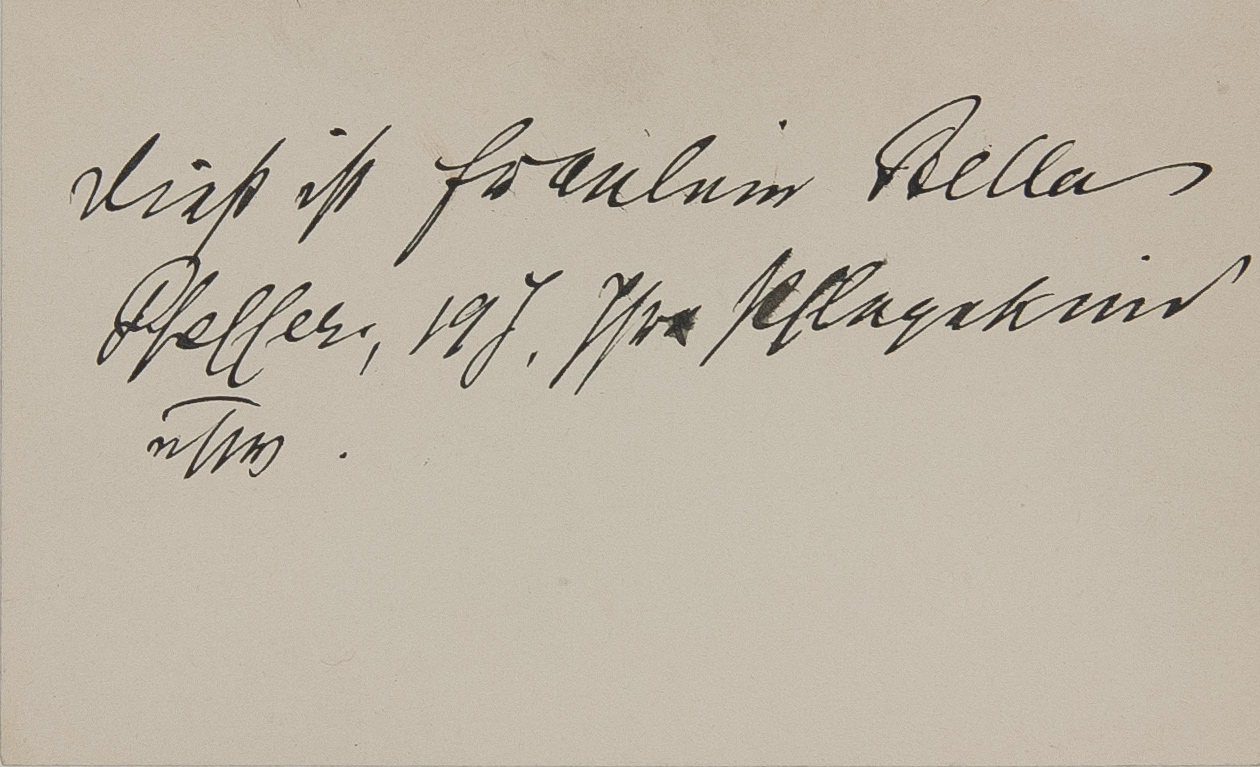 Dieß ist Fraulein Bella
Pfeffer, 19J, Ihr Pflegekind
usw.